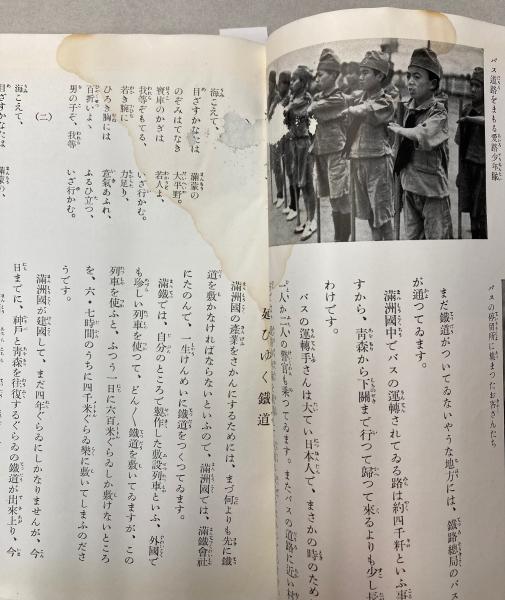 バス道路をまもる愛路少年隊
バスの停留所に集まつたお客さんたち
まだ鐵道がついてゐないやうな地方には、鐵路總局のバス
が通つてゐます。
滿洲國中でバスの運轉されてゐる路は約四千粁といふ事
すから、靑森から下關まで行つて歸つて來るよりも少し長
わけです。
バスの運轉手さんは大てい日本人で、まさかの時のため
一人か二人の警官も乘つてゐます。またバスの道路に近い村
延びゆく鐵道
滿洲國の產業をさかんにするためには、まづ何よりも先に鐵
道を敷かなければならないといふので、滿洲國では、滿鐵會社
にたのんで、一生けんめいに鐵道をつくつてゐます。
滿鐵では、自分のところで製作した敷設列車といふ、外國で
も珍しい列車を使つて、どん〳〵鐵道を敷いてゐますが、この
列車を使ふと、ふつう一日に六百米ぐらゐしか敷けないところ
を、六・七時間のうちに四千米ぐらゐ樂に敷いてしまふのださ
うです。
滿洲國が建國して、まだ四年ぐらゐにしかなりませんが、今
日までに、神戸と靑森を往復するぐらゐの鐵道が出來上り、今
海こえて、
目ざすかなたは 滿蒙の
のぞみはてなき 大平野。
寶庫のかぎは 若人よ、
我等ぞもてる、 いざ行かむ。
若き腕に 力足り、
ひろき胸には 意氣あふれ、
百折いよゝ ふるひ立つ、
男の子ぞ、我等 いざ行かむ。
(二)
海こえて、
目ざすかなたは 滿蒙の、